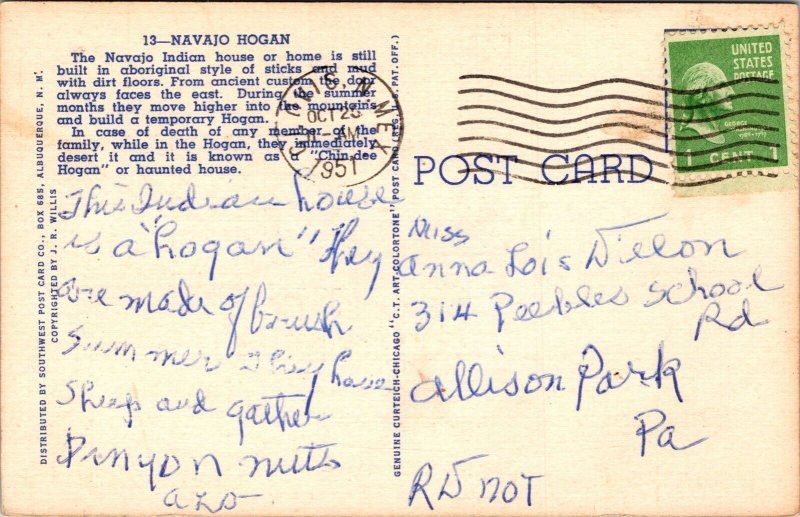 13—NAVAJO HOGAN
The Navajo Indian house or home is still
built in aboriginal style of sticks and mud
with dirt floors. From ancient custom the door
always faces the east. During the summer
months they move higher into the mountains
and build a temporary Hogan.
In case of death of any member of the
family, while in the Hogan, they immediately
desert it and it is known as a "Chin-dee
Hogan" or haunted house.
This Indian house
is a "hogan" They
are made of brush
Summer They have
Sheep and gather
Pinyon nuts
DISTRIBUTED BY SOUTHWEST POST CARD CO., BOX 685, ALBUQUERQUE, N. M.
COPYRIGHTED BY J. R. WILLIS
GENUINE CURTEICH-CHICAGO "C.T. ART-COLORTONE" POST CARD (REG. U.S. PAT. OFF.)
N MEX
OCT 23
AM
1951
UNITED
STATES
POSTAGE
GEORGE
1 CENT 1
POST CARD
Miss
Anna Lois
314 Peebles School
Rd
Allison Park
Pa
RD not